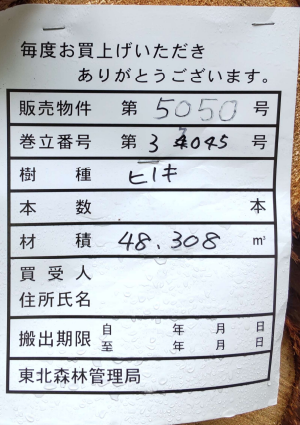 毎度お買上げいただき
ありがとうございます。
販売物件 第 5050 号
巻立番号 第 3 4045 号
樹種 ヒノキ
本数 本
材積 48.308 m²
買受人
住所氏名
搬出期限 自 年 月 日
至 年 月 日
東北森林管理局